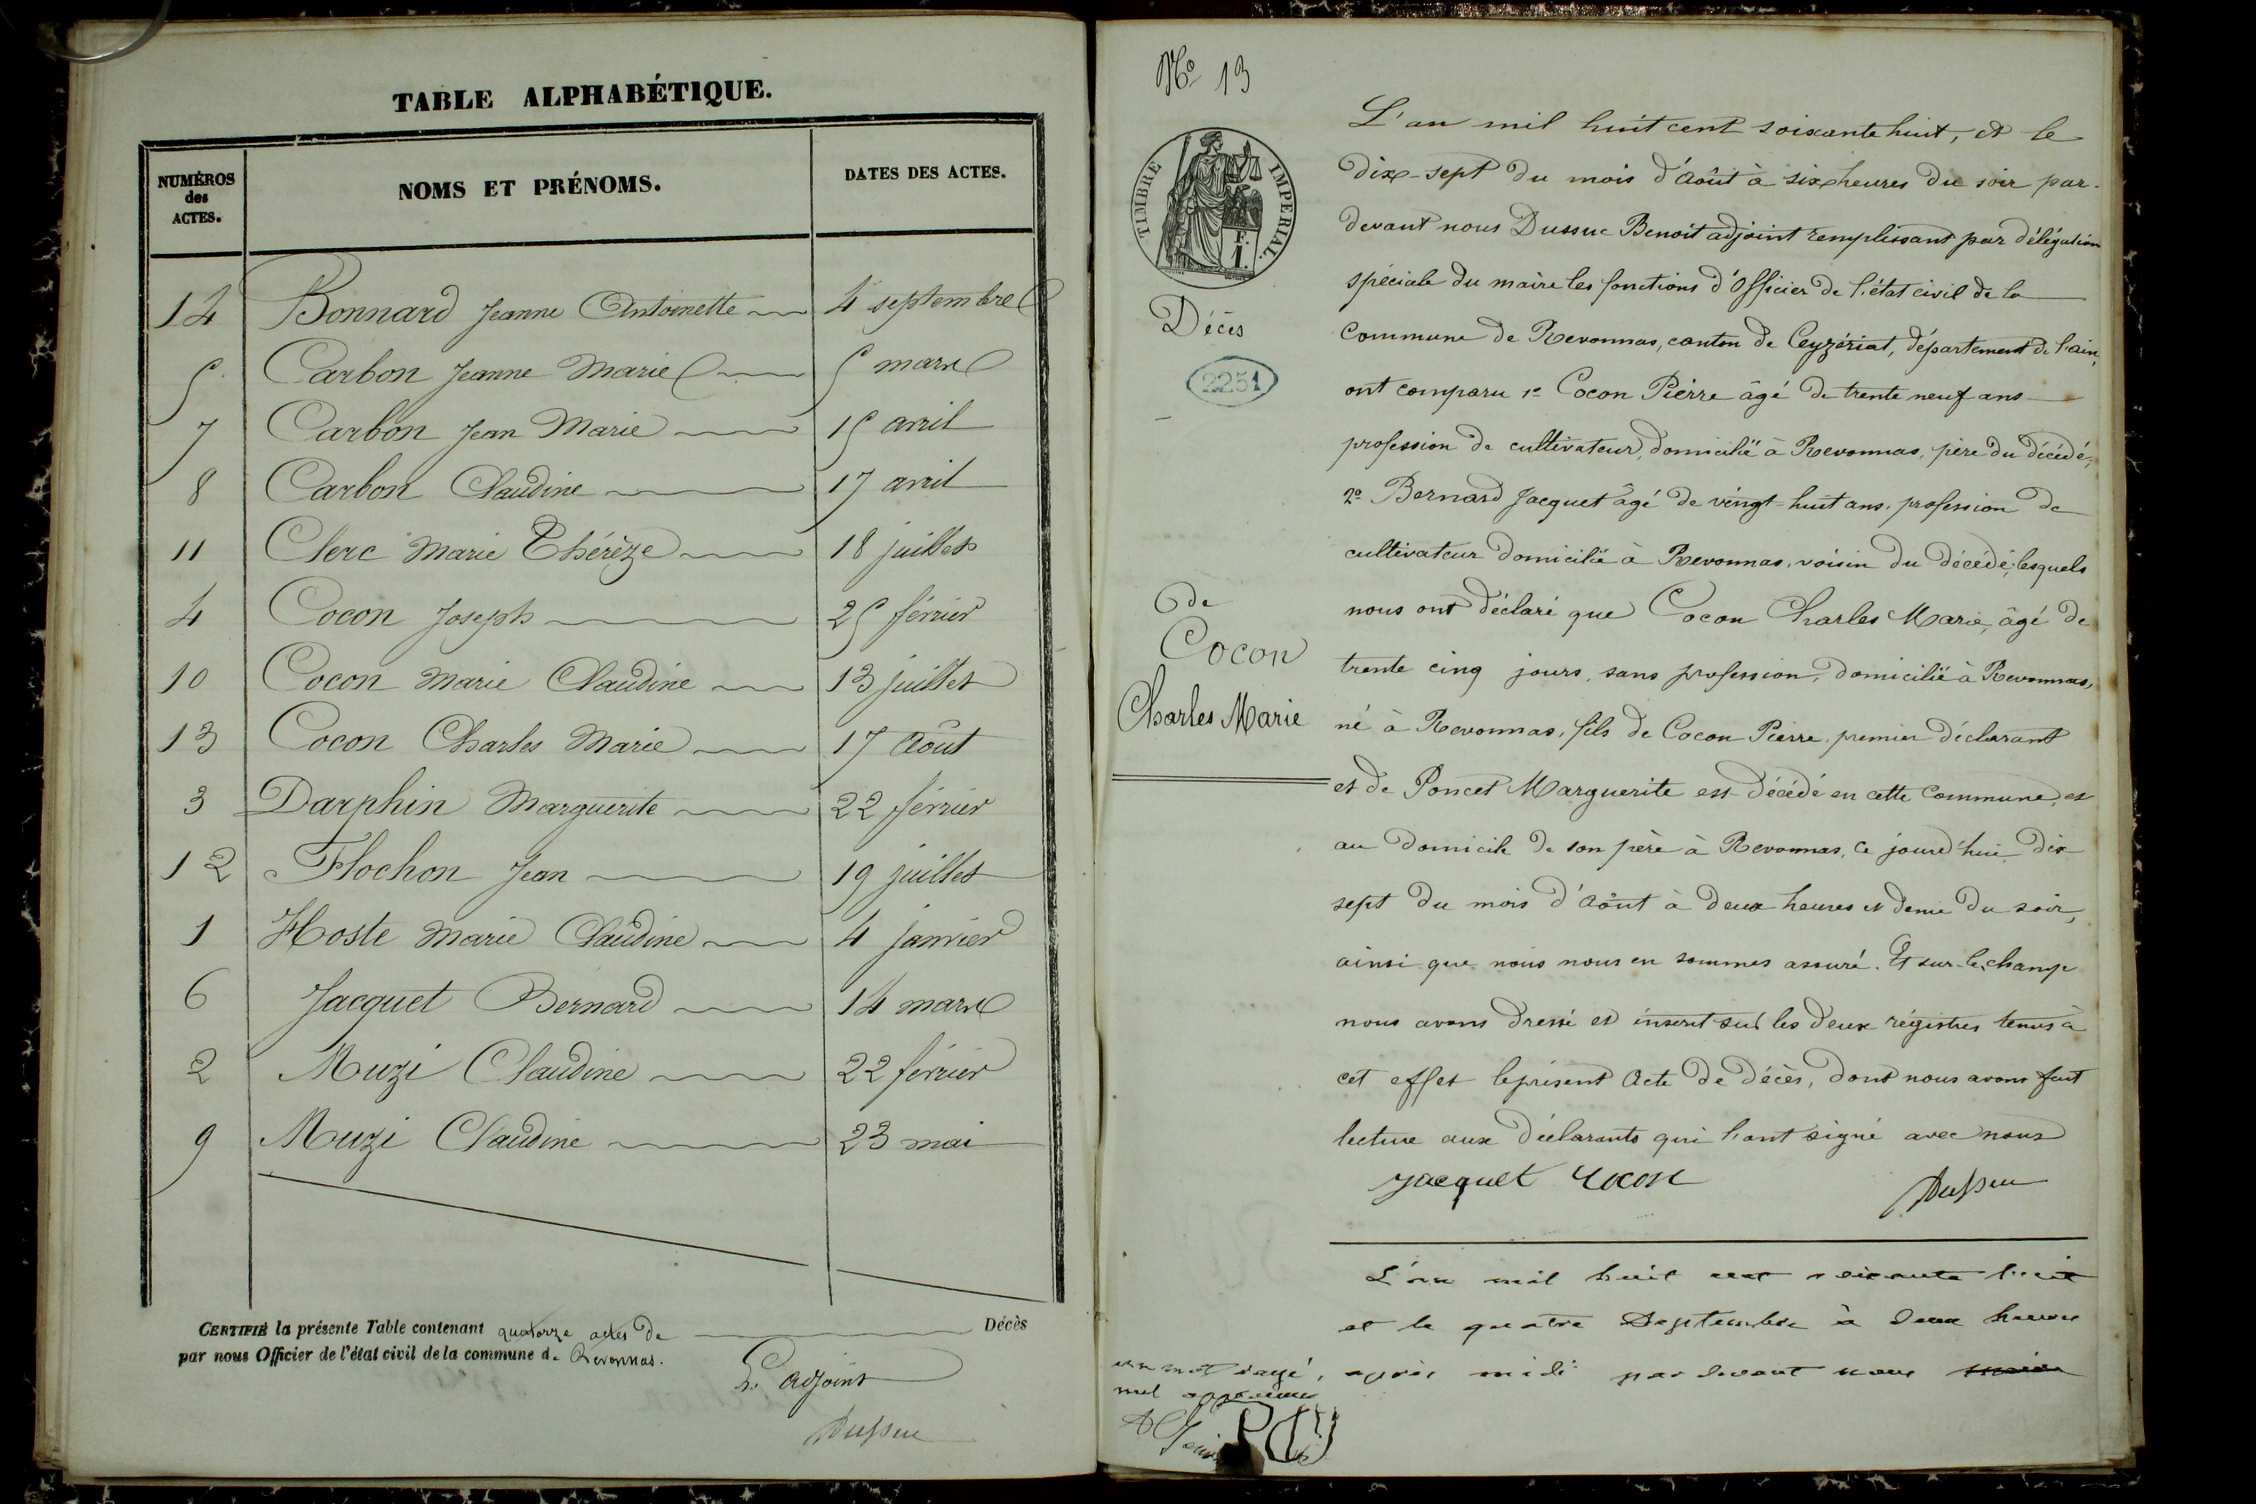 TABLE ALPHABÉTIQUE.
NUMÉROS des ACTES.
NOMS ET PRÉNOMS.
DATES DES ACTES.
14 Bonnard Jeanne Antoinette 4 septembre
5 Carbon Jeanne Marie 5 mars
7 Carbon Jean Marie 15 avril
8 Carbon Claudine 17 avril
11 Clerc Marie Thérèze 18 juillet
4 Cocon Joseph 25 février
10 Cocon Marie Claudine 13 juillet
13 Cocon Charles Marie 17 Août
3 Darphin Marguerite 22 février
12 Flochon Jean 19 juillet
1 Hoste Marie Claudine 4 janvier
6 Jacquet Bernard 14 mars
2 Muzi Claudine 22 février
9 Muzi Claudine 23 mai
CERTIFIÉ la présente Table contenant quatorze actes de Décès
par nous Officier de l'état civil de la commune de Revonnas.
L'adjoint
Dussuc
No 13
TIMBRE IMPERIAL.
F.
1.
Décès
2251
de
Cocon
Charles Marie
L'an mil huit cent soixante huit, et le
dix-sept du mois d'Août à six heures du soir par-
devant nous Dussuc Benoit adjoint remplissant par délégation
spéciale du maire les fonctions d'Officier de l'état civil de la
commune de Revonnas, canton de Ceyzériat, département de l'ain,
ont comparu 1o Cocon Pierre âgé de trente neuf ans
profession de cultivateur, domicilié à Revonnas, père du décédé,
2o Bernard Jacquet âgé de vingt-huit ans, profession de
cultivateur domicilié à Revonnas, voisin du décédé; lesquels
nous ont déclaré que Cocon Charles Marie, âgé de
trente cinq jours, sans profession, domicilié à Revonnas,
né à Revonnas, fils de Cocon Pierre, premier déclarant
et de Poncet Marguerite est décédé en cette commune, et
au domicile de son père à Revonnas, ce jourd'hui dix
sept du mois d'Août à deux heures et demie du soir,
ainsi que nous nous en sommes assuré. Et sur-le-champ
nous avons dressé et inscrit sur les deux régistres tenus à
cet effet le présent Acte de décès, dont nous avons fait
lecture aux déclarants qui l'ont signé avec nous
Jacquet Cocon Dussuc
L'an mil huit cent soixante huit
et le quatre Septembre à deux heures
après midi par devant nous maire
un mot rayé,
nul approuvé